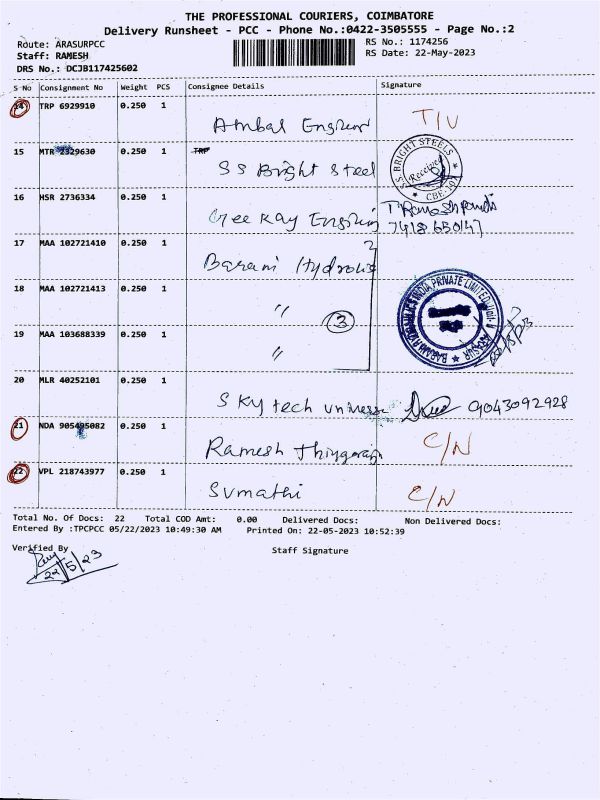 THE PROFESSIONAL COURIERS, COIMBATORE
Delivery Runsheet - PCC - Phone No.:0422-3505555 - Page No.:2
Route: ARASURPCC
RS No.: 1174256
Staff: RAMESH
RS Date: 22-May-2023
DRS No.: DCJB117425602
S No Consignment No Weight PCS Consignee Details Signature
14 TRP 6929910 0.250 1 Ambal T/U
15 MTR 2329630 0.250 1 TRP S S Bright Steel S.S. BRIGHT STEELS Received
16 HSR 2736334 0.250 1
17 MAA 102721410 0.250 1 Barani
18 MAA 102721413 0.250 1 "
3
19 MAA 103688339 0.250 1 "
20 MLR 40252101 0.250 1 Sky tech 9043092928
21 NDA 0.250 1 Ramesh C/N
22 VPL 218743977 0.250 1 Sumathi C/N
Total No. Of Docs: 22 Total COD Amt: 0.00 Delivered Docs: Non Delivered Docs:
Entered By :TPCPCC 05/22/2023 10:49:30 AM Printed On: 22-05-2023 10:52:39
Verified By Staff Signature
22/5/23